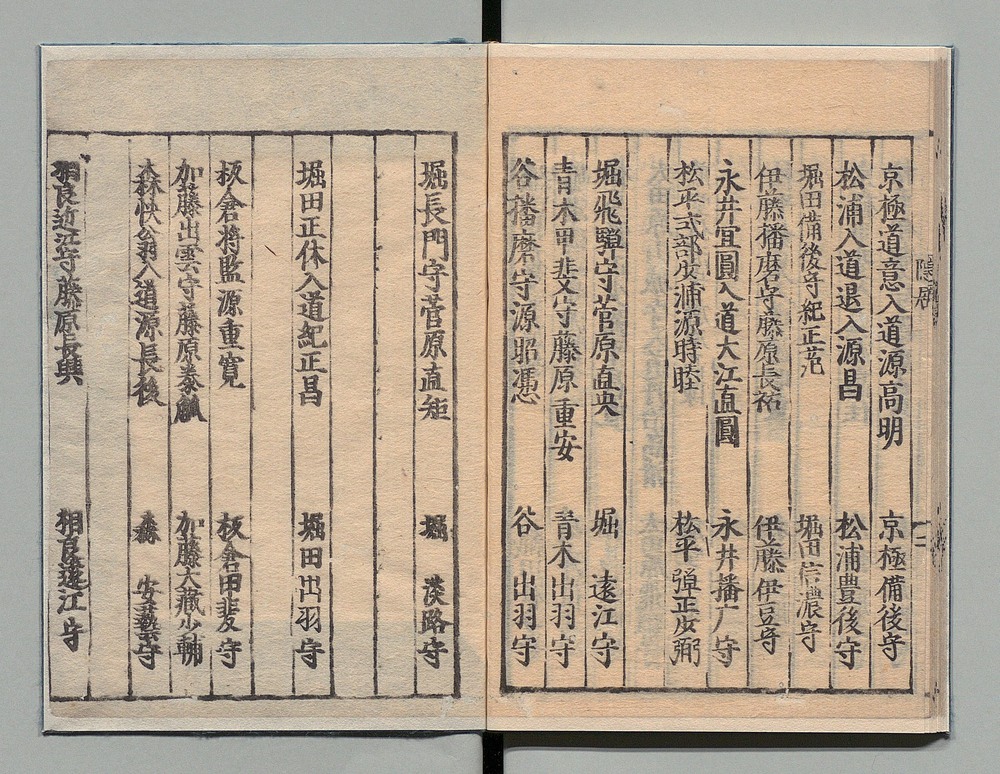 京極道意入道源高明 京極備後守
松浦入道退入源昌 松浦豊後守
堀田備後守紀正 堀田信濃守
伊藤播磨守藤原長祐 伊藤伊豆守
永井宜圓入道大江直圓 永井播广守
松平式部少輔源時睦 松平弾正少弼
堀飛騨守菅原直央 堀 遠江守
青木甲斐守藤原重安 青木出羽守
谷播磨守源昭憑 谷 出羽守
堀長門守菅原直矩 堀 淡路守
堀田正休入道紀正昌 堀田出羽守
板倉将監源重寛 板倉甲斐守
加藤出雲守藤原泰 加藤大蔵少輔
森快翁入道源長後 森 安藝守
相良近江守藤原長興 相良遠江守